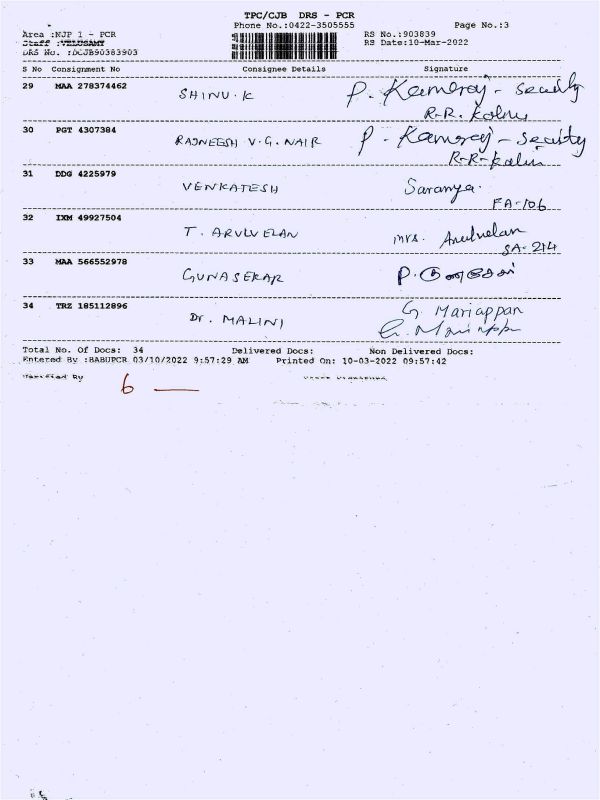 TPC/CJB DRS - PCR
Phone No.:0422-3505555 Page No.:3
Area :NJP 1 - PCR RS No.:903839
Staff :VELUSAMY RS Date:10-Mar-2022
DRS No. :DCJB90383903
S No Consignment No Consignee Details Signature
29 MAA 278374462 SHINU.K P. Kamaraj - Security
R.R.
30 PGT 4307384 RAJNEESH V.G. NAIR P. Kamaraj - Security
R-R-
31 DDG 4225979 VENKATESH Saranya.
FA-106
32 IXM 49927504 T. ARULVELAN mrs. Arulvelan
SA-214
33 MAA 566552978 GUNASEKAR P. குணசேகர்
34 TRZ 185112896 Dr. MALINI G. Mariappan
G. Mariappn
Total No. Of Docs: 34 Delivered Docs: Non Delivered Docs:
Entered By :BABUPCR 03/10/2022 9:57:29 AM Printed On: 10-03-2022 09:57:42
Verified By
6 —